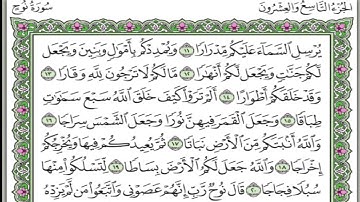 الجزء التاسع والعشرون
سورة نوح
يُرْسِلِ السَّمَاءَ عَلَيْكُمْ مِدْرَارًا ١١ وَيُمْدِدْكُمْ بِأَمْوَالٍ وَبَنِينَ وَيَجْعَلْ
لَكُمْ جَنَّاتٍ وَيَجْعَلْ لَكُمْ أَنْهَارًا ١٢ مَا لَكُمْ لَا تَرْجُونَ لِلَّهِ وَقَارًا ١٣
وَقَدْ خَلَقَكُمْ أَطْوَارًا ١٤ أَلَمْ تَرَوْا كَيْفَ خَلَقَ اللَّهُ سَبْعَ سَمَوَاتٍ
طِبَاقًا ١٥ وَجَعَلَ الْقَمَرَ فِيهِنَّ نُورًا وَجَعَلَ الشَّمْسَ سِرَاجًا ١٦
وَاللَّهُ أَنْبَتَكُمْ مِنَ الْأَرْضِ نَبَاتًا ١٧ ثُمَّ يُعِيدُكُمْ فِيهَا وَيُخْرِجُكُمْ
إِخْرَاجًا ١٨ وَاللَّهُ جَعَلَ لَكُمُ الْأَرْضَ بِسَاطًا ١٩ لِتَسْلُكُوا مِنْهَا
سُبُلًا فِجَاجًا ٢٠ قَالَ نُوحٌ رَبِّ إِنَّهُمْ عَصَوْنِي وَاتَّبَعُوا مَنْ لَمْ يَزِدْهُ